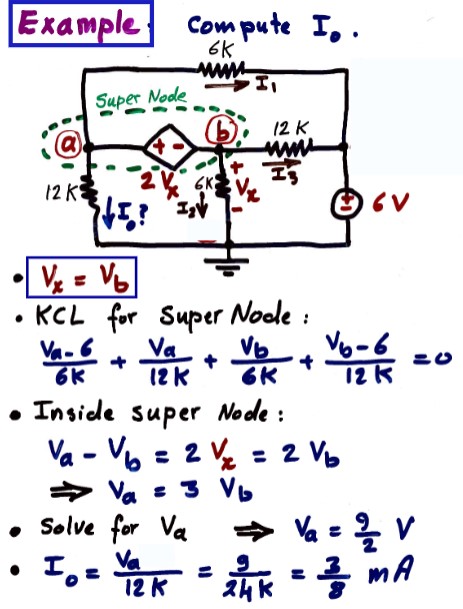 Example: Compute I₀.
6K
I₁
Super Node
a
b
12 K
+ -
2Vₓ
6K
+
Vₓ
-
I₃
12K
I₀?
I₂
6V
• Vₓ = V_b
• KCL for Super Node:
(Va-6)/6K + Va/12K + Vb/6K + (Vb-6)/12K = 0
• Inside super Node:
Va - Vb = 2 Vₓ = 2 Vb
⇒ Va = 3 Vb
• Solve for Va ⇒ Va = 9/2 V
• I₀ = Va/12K = 9/24K = 3/8 mA